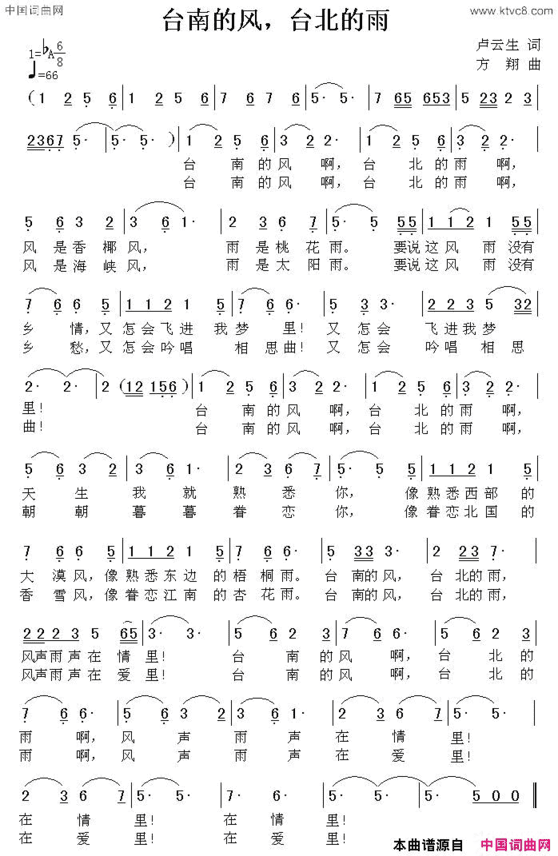 中国词曲网
www.ktvc8.com
台南的风，台北的雨
1=♭A 6/8
♩=66
卢云生 词
方 翔 曲
台 南的风 啊， 台 北的雨 啊，
台 南的风 啊， 台 北的雨 啊，
风 是香椰风， 雨 是桃花雨。 要说这风 雨没有
风 是海峡风， 雨 是太阳雨。 要说这风 雨没有
乡 情，又 怎会飞进我梦 里！又 怎会 飞进我梦
乡 愁，又 怎会吟唱 相思曲！又 怎会 吟唱 相思
里！ 台 南的风 啊， 台 北的雨 啊，
曲！ 台 南的风 啊， 台 北的雨 啊，
天 生 我 就 熟 悉 你， 像熟悉西部的
朝 朝 暮 暮 眷 恋 你， 像眷恋北国的
大 漠风，像熟悉东边 的梧桐雨。 台 南的风， 台 北的雨，
香 雪风，像眷恋江南 的杏花雨。 台 南的风， 台 北的雨，
风声雨声在 情 里！ 台 南的 风 啊， 台 北的
风声雨声在 爱 里！ 台 南的 风 啊， 台 北的
雨 啊， 风 声 雨声 在 情 里！
雨 啊， 风 声 雨声 在 爱 里！
在 情 里！ 在 情 里！
在 爱 里！ 在 爱 里！
本曲谱源自 中国词曲网